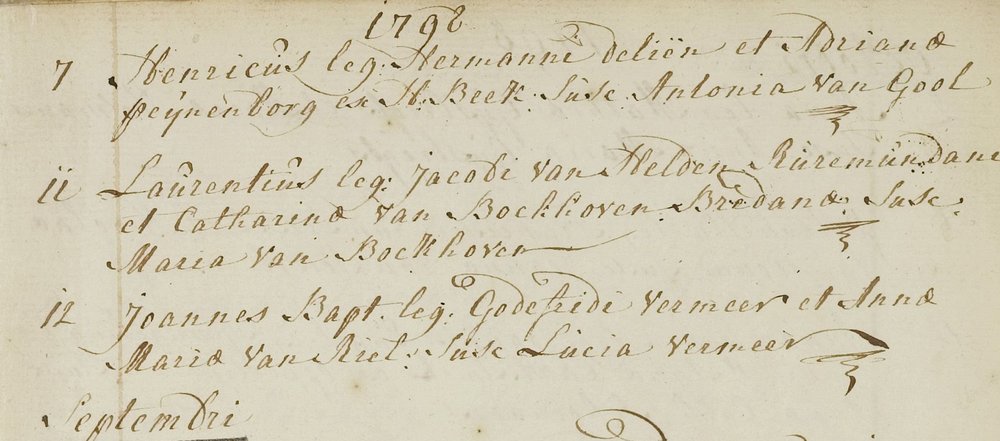 1798
7 Henricus leg: Hermanni deliën et Adrianæ
peijnenborg ex H. Beek. Susc Antonia van Gool
11 Laurentius leg: Jacobi van Helden Ruremundani
et Catharinæ van Bockhoven Bredanæ. Susc.
Maria van Bockhoven
12 Joannes Bapt. leg. Godefridi vermeer et Annæ
Mariæ van Riel. Susc Lucia vermeer
Septembri